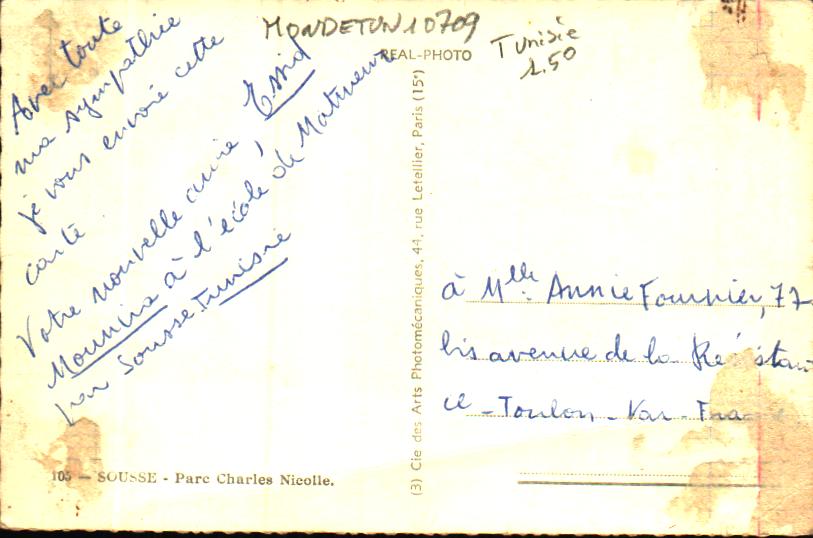 MONDETUN10709
REAL-PHOTO
Tunisie
1.50
Avec toute
ma sympathie
je vous envoie cette
carte
Votre nouvelle amie, Essid
Mounira à l'école de
par Sousse. Tunisie
(3) Cie des Arts Photomécaniques, 44, rue Letellier, Paris (15°)
à Mlle. Annie Fournier, 77
bis avenue de la
ce - Toulon - Var -
105 — SOUSSE - Parc Charles Nicolle.